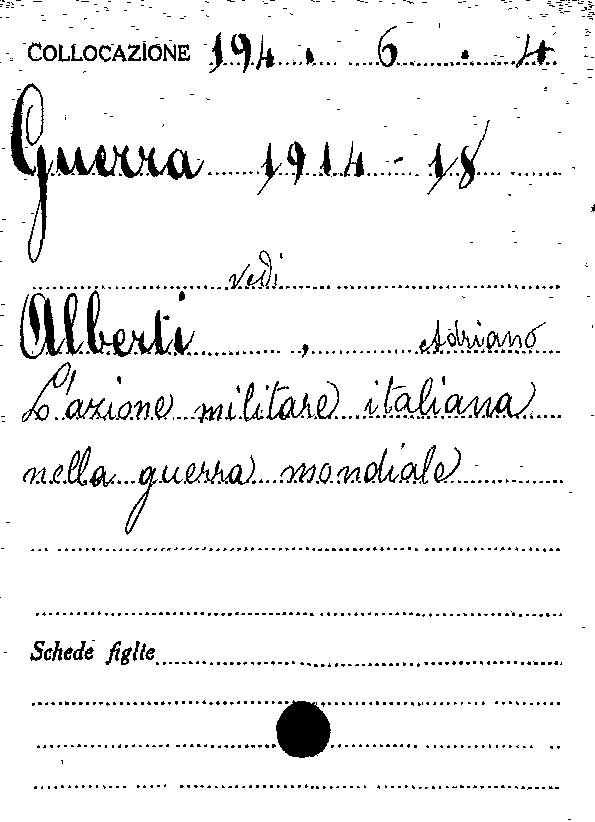 COLLOCAZIONE 194. 6. 4
Guerra 1914-18
vedi
Alberti, Adriano
L'azione militare italiana
nella guerra mondiale
Schede figlie